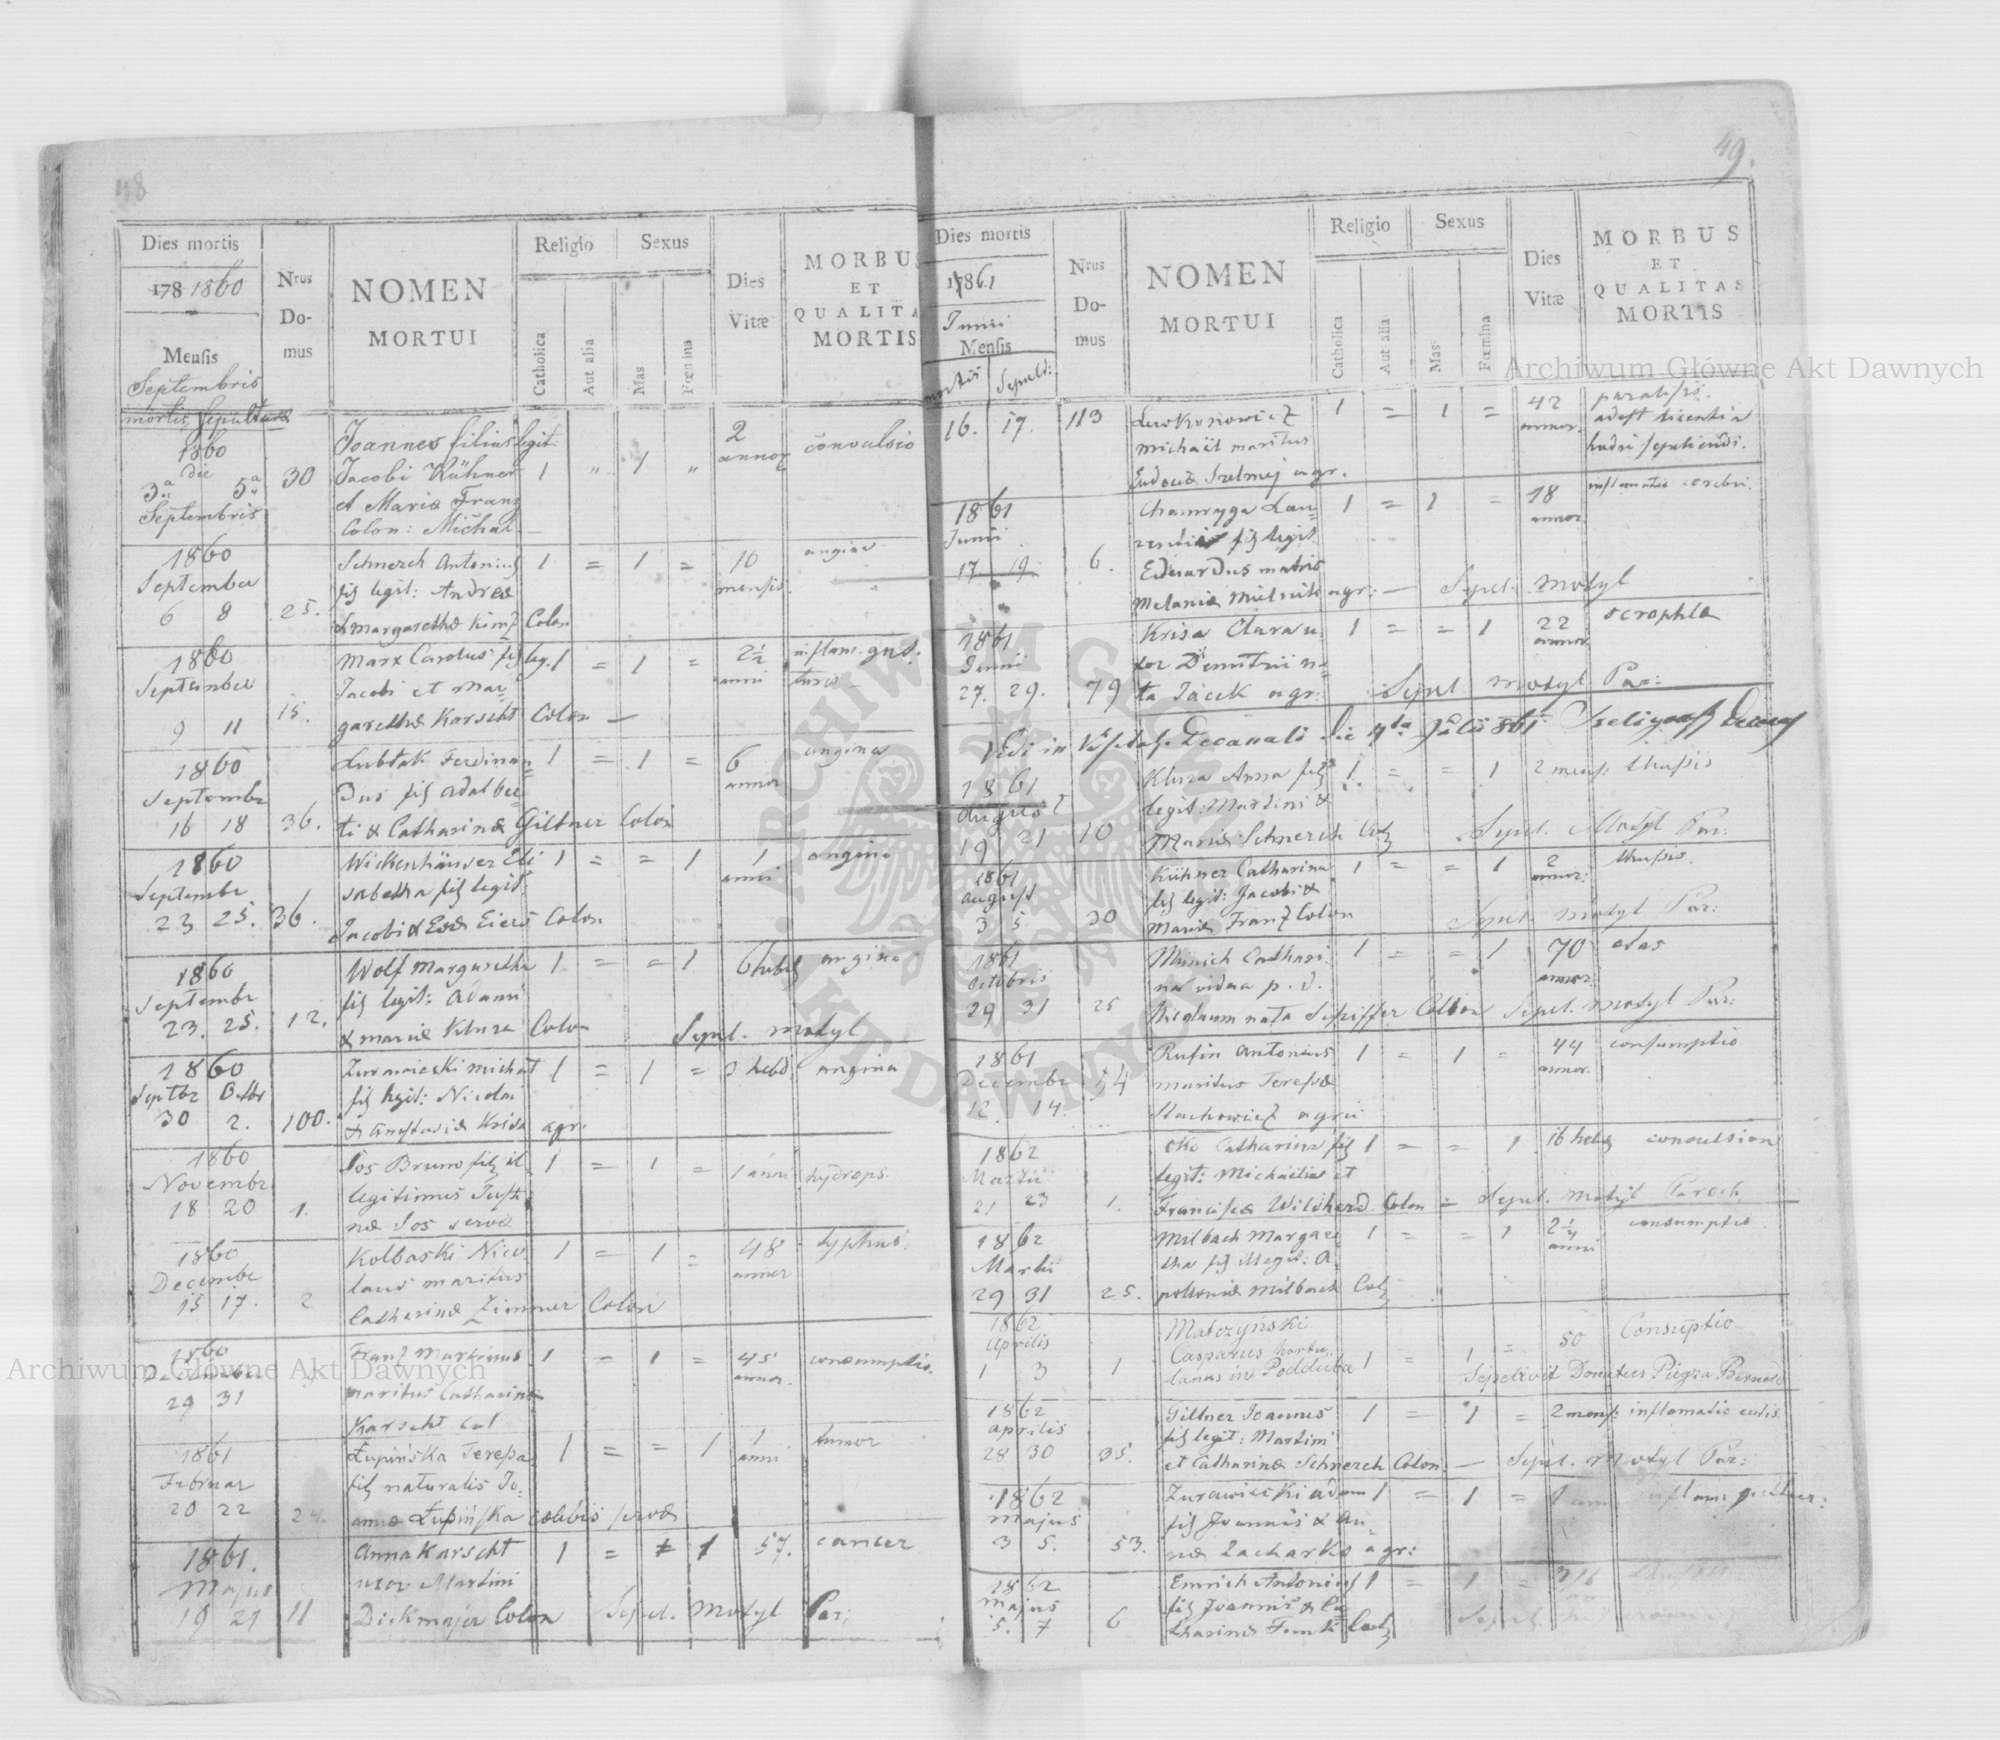 48
Dies mortis
178 1860
Mensis
Septembris
mortis sepulturæ
Nrus
Do-
mus
NOMEN
MORTUI
Religio
Catholica
Aut alia
Sexus
Mas
Fœmina
Dies
Vitæ
MORBUS
ET
QUALITA
MORTIS
1860
die
3a 5a
Septembris
30
Joannes filius legit:
Jacobi Kühner 1 " 1 "
et Mariæ Franz
Colon: Michal.
2
annor
convulsio
1860
September
6 8
25.
Schnerch Antonius 1 = 1 =
fil legit: Andreæ
& Margarethæ Kinz Colon
10
mensis.
angina
1860
September
9 11
15.
Marx Carolus fil leg. 1 = 1 =
Jacobi et Mar-
garethæ Karscht Colon —
2½
anni
inflam. gut-
turis
1860
Septembr
16 18
36.
Lubtak Ferdinan- 1 = 1 =
dus fil Adalber-
ti & Catharinæ Giltner Colon
6
annor
angina
1860
Septembr
23 25.
36.
Wickenhäuser Eli 1 = = 1
sabetha fil legit:
Jacobi & Evæ Eiers Colon
1
anni
angina
1860
Septembr
23. 25.
12.
Wolf Margaretha 1 = = 1
fil legit: Adami
& Mariæ Kluza Colon Sepul. Motyl
6 hebd
angina
1860
Septbr Octbr
30 2.
100.
Zurawieski Michał 1 = 1 =
fil legit: Nicolai
& Anastasiæ Krisa agr.
3 hebd.
angina
1860
Novembr
18 20
1.
Sos Bruno fil il- 1 = 1 =
legitimus Justi
næ Sos servæ
1 anni
hydrops.
1860
Decembr
15 17.
2
Kolbaski Nico 1 = 1 =
laus maritus
Catharinæ Zimmer Colon
48
annor
typhus.
1860
29 31
Franz Martinus 1 = 1 =
maritus Catharinæ
Karscht Col
45
annor.
consumptio.
1861
Februar
20 22
24.
Łupińska Teressa 1 = = 1
fil naturalis Jo-
annæ Łupińska cælibis servæ
1
anni
tumor
1861.
Majus
19 21
11
Anna Karscht 1 = 1
uxor Martini
Diekmajer Colon Sepul. Motyl Par:
57.
cancer
49.
Dies mortis
1861
Junii
Mensis
mortis Sepult:
Nrus
Do-
mus
NOMEN
MORTUI
Religio
Catholica
Aut alia
Sexus
Mas
Fœmina
Dies
Vitæ
MORBUS
ET
QUALITAS
MORTIS
16. 17.
113
Lewkonowicz 1 = 1 =
Michaël maritus
Eudociæ Szelmej agr.
42
annor.
paralisis.
adest licentia
1861
Junii
17. 19.
6.
Chamryga Lau- 1 = 1 =
rentius fil legit
Eduardus matris
Melaniæ Mielnik agr: — Sepul. Motyl
18
annor
inflamatio cerebri.
1861
Junii
27. 29.
79
Krisa Clara u- 1 = = 1
xor Dimitrii na-
ta Jacek agr: Sepul Motyl Par:
22
annor
scrophlæ
Vidi in Visitat. Decanali die 4ta Julii 861
1861
August
19 21
10
Kluza Anna fil 1 = = 1
legit: Martini &
Mariæ Schnerch Col Sepul. Motyl Par.
2 mens:
thussis
1861
August
3 5
30
Kühner Catharina 1 = = 1
fil legit: Jacobi &
Mariæ Franz Colon Sepul. Motyl Par:
2
annor:
thussis.
1861
Octobris
29 31
25
Münich Cathari- 1 = = 1
na vidua p. d.
Nicolaum nata Schiffer Colon Sepul. Motyl Par:
70
annor.
etas
1861
Decembr
12. 14.
54
Rufin Antonius 1 = 1 =
maritus Teressæ
Stachowicz agric
44
annor.
consumptio
1862
Martii
21 23
1.
Oko Catharina fil 1 = = 1
legit: Michaëlis et
Franciscæ Wildherd Colon = Sepul. Motyl Paroch
16 hebd
convulsion
1862
Martii
29 31
25.
Milbach Margare 1 = = 1
tha fil illegit: A-
polloniæ Milbach Col
2¼
anni
consumptio
1862
Aprilis
1 3
1
Matczyński
Casparus hortu-
lanus in Poddubce 1 = 1 =
50
Consuptio
Sepelivit Donatus Piegza Bernard
1862
Aprilis
28 30
35.
Giltner Joannes 1 = 1 =
fil legit: Martini
et Catharinæ Schnerch Colon. — Sepul. Motyl Par:
2 mens:
inflamatio cutis
1862
Majus
3 5.
53.
Zurawiecki Adam 1 = 1 =
fil Joannis & An-
næ Zacharko agr:
1862
Majus
5. 7
6
Emrich Antonius 1 = 1 =
fil Joannis & Ca-
tharinæ Funk Col
Archiwum Główne Akt Dawnych
Archiwum Główne Akt Dawnych
ARCHIWUM GŁÓWNE AKT DAWNYCH